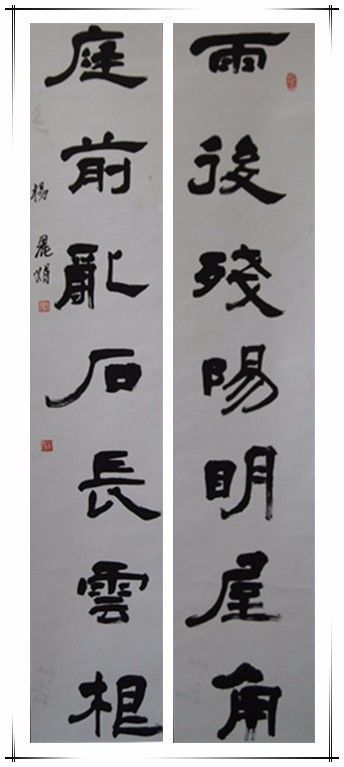 雨後殘陽明屋角
庭前亂石長雲根
楊